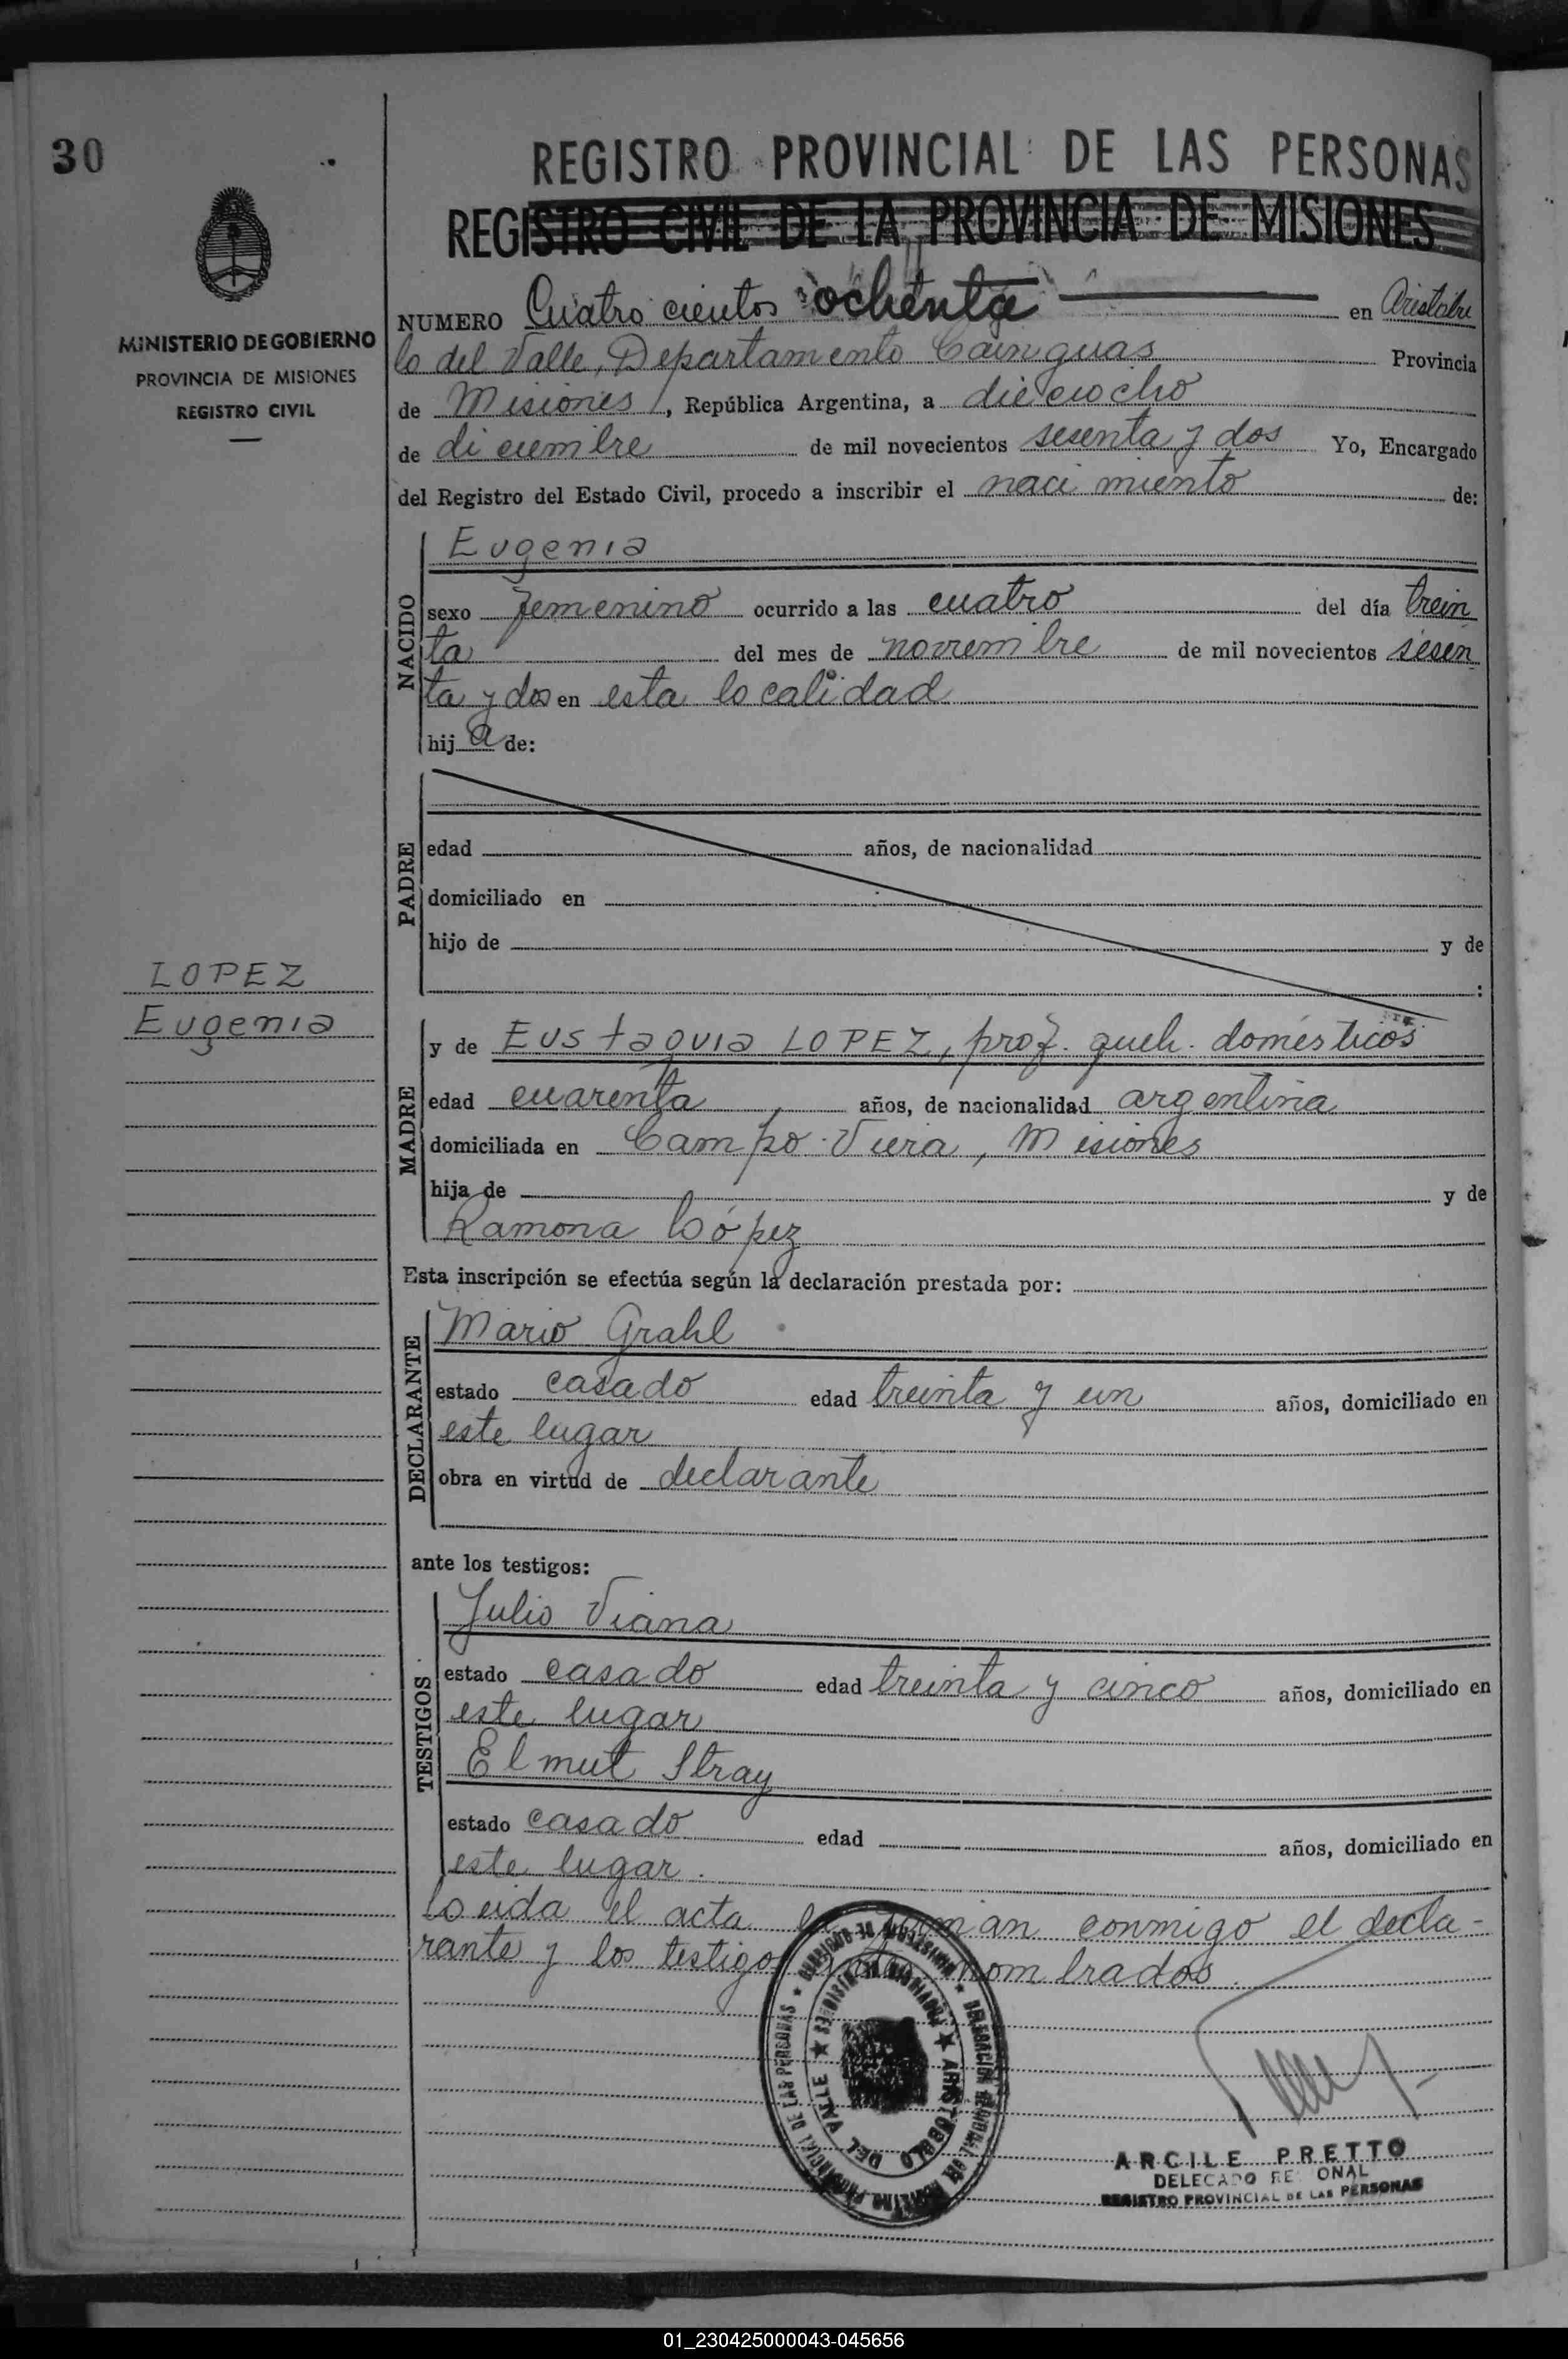 30
MINISTERIO DE GOBIERNO
PROVINCIA DE MISIONES
REGISTRO CIVIL
REGISTRO PROVINCIAL DE LAS PERSONAS
REGISTRO CIVIL DE LA PROVINCIA DE MISIONES
NUMERO Cuatro cientos ochenta en Aristobu
lo del Valle, Departamento Cainguas Provincia
de Misiones, República Argentina, a dieciocho
de diciembre de mil novecientos sesenta y dos Yo, Encargado
del Registro del Estado Civil, procedo a inscribir el nacimiento de:
NACIDO
Eugenia
sexo femenino ocurrido a las cuatro del día trein
ta del mes de noviembre de mil novecientos sesen
ta y dos en esta localidad
hij a de:
PADRE
edad años, de nacionalidad
domiciliado en
hijo de y de
:
LOPEZ
Eugenia
MADRE
y de Eustaquia LOPEZ, prof. queh. domésticos
edad cuarenta años, de nacionalidad argentina
domiciliada en Campo Viera, Misiones
hija de y de
Ramona López
Esta inscripción se efectúa según la declaración prestada por:
DECLARANTE
Mario Grahl
estado casado edad treinta y un años, domiciliado en
este lugar
obra en virtud de declarante
ante los testigos:
TESTIGOS
Julio Viana
estado casado edad treinta y cinco años, domiciliado en
este lugar
Elmut Stray
estado casado edad años, domiciliado en
este lugar.
Leida el acta la firman conmigo el decla-
rante y los testigos nombrados.
DELEGACION
PROVINCIAL DE LAS PERSONAS
ARISTOBULO DEL VALLE
ARCILE PRETTO
DELEGADO RE ONAL
REGISTRO PROVINCIAL DE LAS PERSONAS
01_230425000043-045656